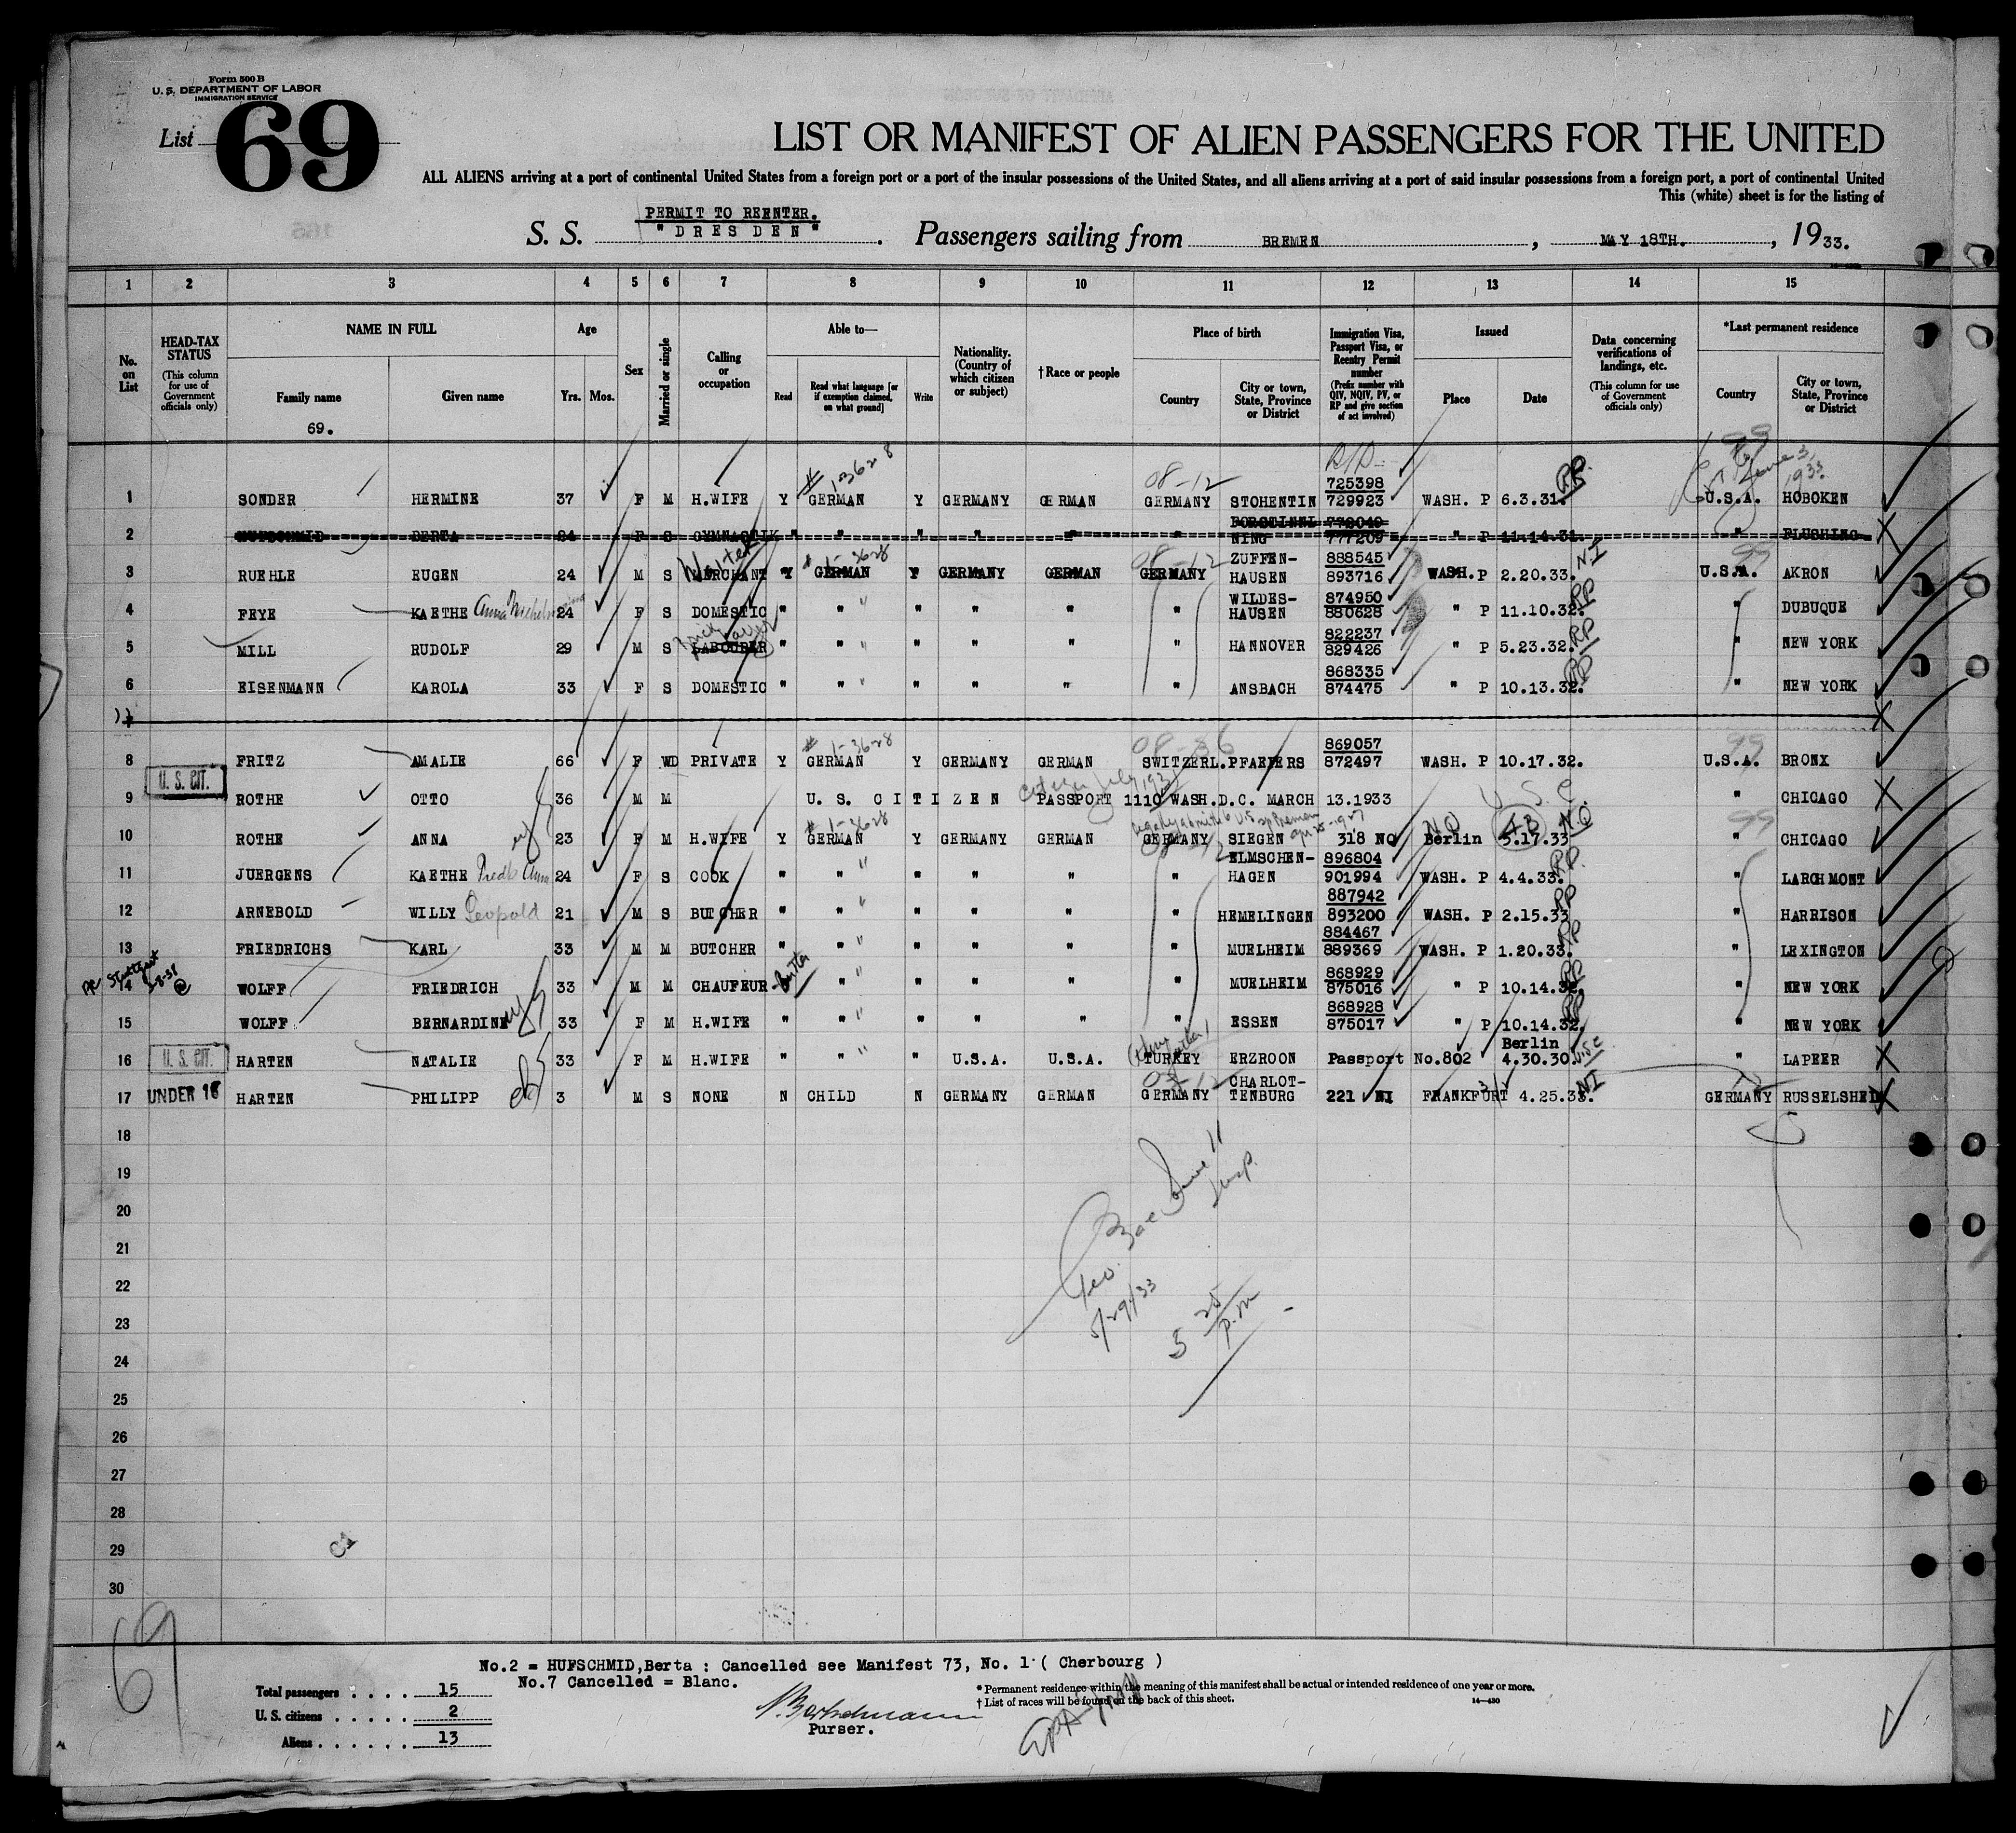 Form 500 B
U. S. DEPARTMENT OF LABOR
IMMIGRATION SERVICE
List 69
LIST OR MANIFEST OF ALIEN PASSENGERS FOR THE UNITED
ALL ALIENS arriving at a port of continental United States from a foreign port or a port of the insular possessions of the United States, and all aliens arriving at a port of said insular possessions from a foreign port, a port of continental United
This (white) sheet is for the listing of
PERMIT TO REENTER.
S. S. "DRESDEN". Passengers sailing from BREMEN, MAY 18TH., 1933.
1 2 3 4 5 6 7 8 9 10 11 12 13 14 15
No. on List
HEAD-TAX STATUS (This column for use of Government officials only)
NAME IN FULL
Family name Given name
69.
Age
Yrs. Mos.
Sex
Married or single
Calling or occupation
Able to—
Read Read what language [or if exemption claimed, on what ground] Write
Nationality. (Country of which citizen or subject)
†Race or people
Place of birth
Country City or town, State, Province or District
Immigration Visa, Passport Visa, or Reentry Permit number (Prefix number with QIV, NQIV, PV, or RP and give section of act involved)
Issued
Place Date
Data concerning verifications of landings, etc. (This column for use of Government officials only)
*Last permanent residence
Country City or town, State, Province or District
99
# 1-3628 08-12 June 3, 1933
725398 RP
1 SONDER HERMINE 37 F M H.WIFE Y GERMAN Y GERMANY GERMAN GERMANY STOHENTIN 729923 WASH. P 6.3.31. U.S.A. HOBOKEN
772049
2 HUFSCHMID BERTA 24 F S GYMNASTIK " " " " " " NING 777209 " P 11.14.31. " FLUSHING
# 1-3628 08-12 ZUFFEN- 888545 NI 99
3 RUEHLE EUGEN 24 M S MERCHANT Y GERMAN Y GERMANY GERMAN GERMANY HAUSEN 893716 WASH. P 2.20.33. U.S.A. AKRON
WILDES- 874950 RP
4 FEYE KAETHE Anna 24 F S DOMESTIC " " " " " " HAUSEN 880628 " P 11.10.32. " DUBUQUE
822237 RP
5 MILL RUDOLF 29 M S LABOURER " " " " " " HANNOVER 829426 " P 5.23.32. " NEW YORK
868335 RP
6 EISENMANN KAROLA 33 F S DOMESTIC " " " " " " ANSBACH 874475 " P 10.13.32. " NEW YORK
7
# 1-3628 08-36 869057 99
8 FRITZ AMALIE 66 F WD PRIVATE Y GERMAN Y GERMANY GERMAN SWITZERL. PFAEFERS 872497 WASH. P 10.17.32. U.S.A. BRONX
U. S. CIT.
9 ROTHE OTTO 36 M M U. S. CITIZEN PASSPORT 1110 WASH.D.C. MARCH 13.1933 U.S.C. " CHICAGO
# 1-3628 NQ 99
10 ROTHE ANNA 23 F M H.WIFE Y GERMAN Y GERMANY GERMAN GERMANY SIEGEN 318 NQ Berlin 5.17.33 " CHICAGO
ELMSCHEN- 896804 RP.
11 JUERGENS KAETHE 24 F S COOK " " " " " " HAGEN 901994 WASH. P 4.4.33. " LARCHMONT
887942 RP
12 ARNEBOLD WILLY Leopold 21 M S BUTCHER " " " " " " HEMELINGEN 893200 WASH. P 2.15.33 " HARRISON
884467 RP
13 FRIEDRICHS KARL 33 M M BUTCHER " " " " " " MUELHEIM 889369 WASH. P 1.20.33. " LEXINGTON
868929 RP
14 WOLFF FRIEDRICH 33 M M CHAUFEUR " " " " " MUELHEIM 875016 " P 10.14.32. " NEW YORK
868928 RP
15 WOLFF BERNARDINE 33 F M H.WIFE " " " " " " ESSEN 875017 " P 10.14.32. " NEW YORK
U. S. CIT. Berlin
16 HARTEN NATALIE 33 F M H.WIFE " " " U.S.A. U.S.A. TURKEY ERZROON Passport No.802 4.30.30. U.S.C " LAPEER
CHARLOT- NI
17 UNDER 16 HARTEN PHILIPP 3 M S NONE N CHILD N GERMANY GERMAN GERMANY TENBURG 221 NI FRANKFURT 4.25.33. GERMANY RUSSELSHEIM
18
19
20
21
22
23
24
25
26
27
28
29
30
5/29/33
3 25 p.m
69
No.2 = HUFSCHMID,Berta : Cancelled see Manifest 73, No. 1 ( Cherbourg )
No.7 Cancelled = Blanc.
Total passengers . . . . 15
U. S. citizens . . . . . 2
Aliens . . . . . . 13
Purser.
* Permanent residence within the meaning of this manifest shall be actual or intended residence of one year or more.
† List of races will be found on the back of this sheet.
14—430